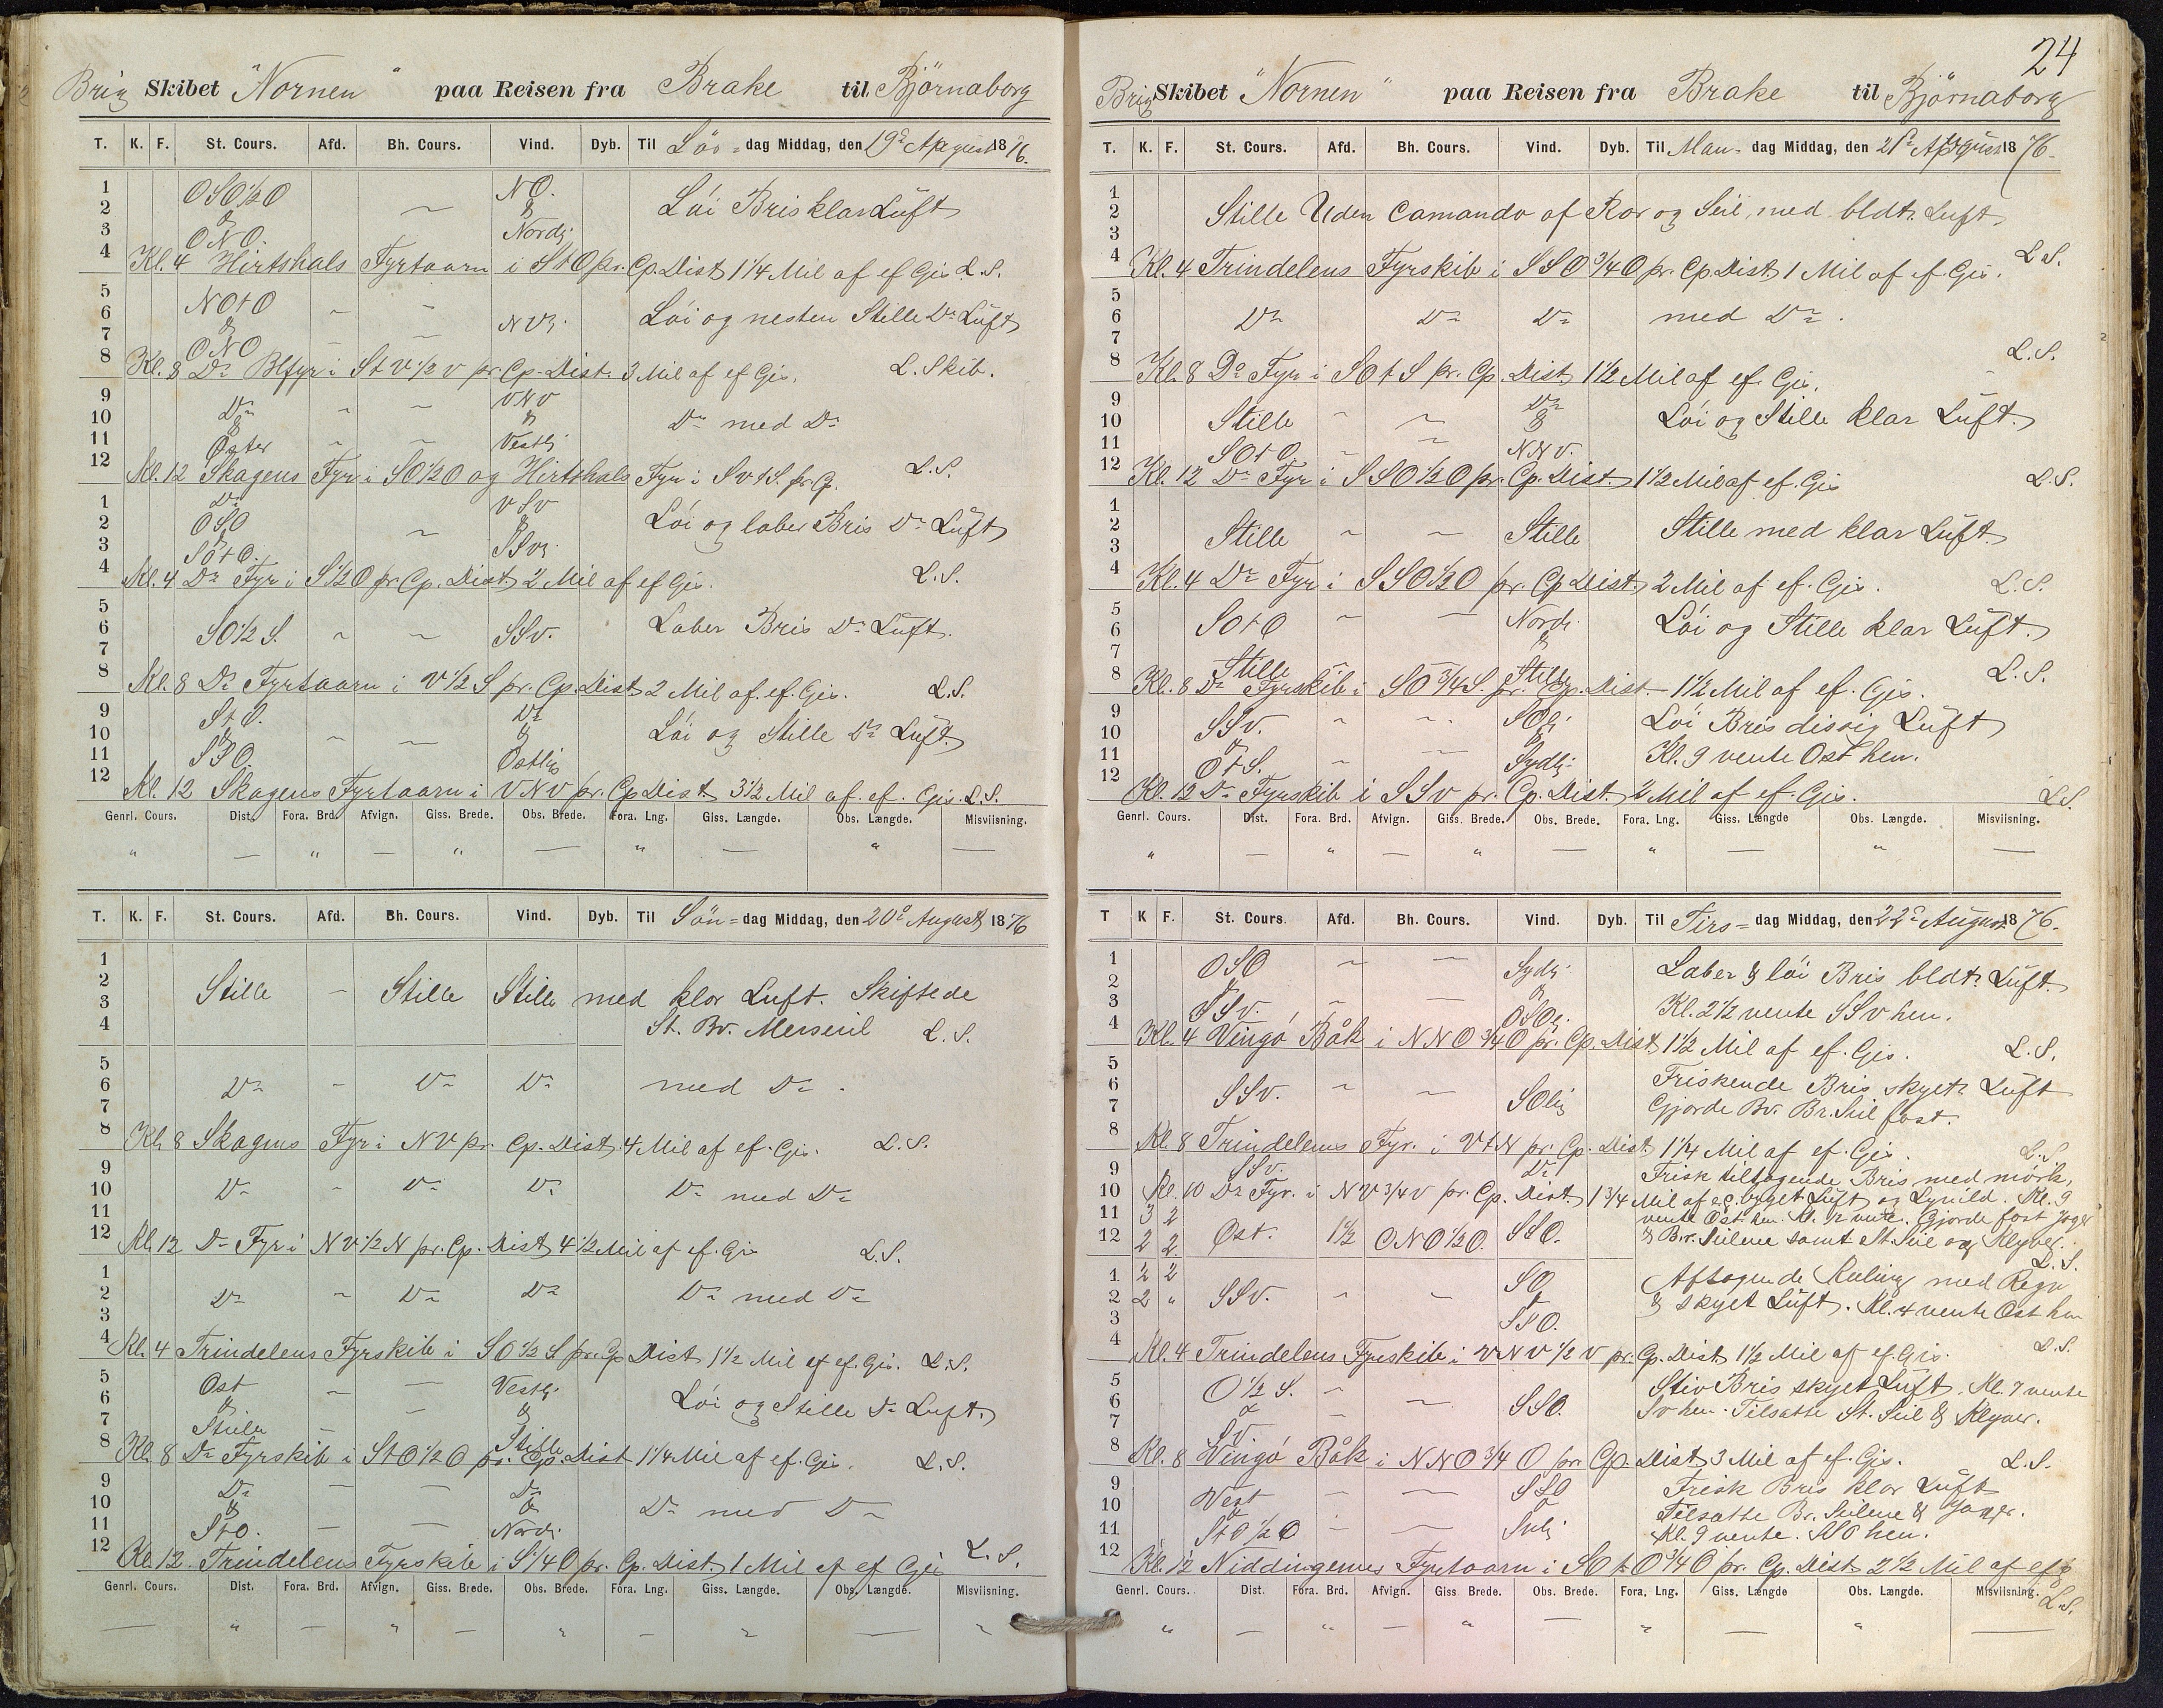 Brig Skibet "Nornen" paa Reisen fra Brake til Björnaborg
T. K. F. St. Cours. Afd. Bh. Cours. Vind. Dyb. Til Lös=dag Middag, den 19de August 1876.
1
2
3
4
OSO½O
&
ONO.
NO.
&
Nordlj.
Löi Bris klar Luft
Kl. 4 Hirtshals Fyrtaarn i StO pr. Cp. Dist 1¼ Mil af ef Gis. L.S.
5
6
7
8
NOtO
&
ONO
NVlj.
Löi og nesten Stille Do Luft
Kl. 8 Do Blfyr i StV½V pr. Cp. Dist. 3 Mil af ef Gis. L. Skib.
9
10
11
12
Do
&
Öster
VNV
&
Vestlj.
Do med Do
Kl. 12 Skagens Fyr i SO½O og Hirtshals Fyr i SVtS. pr. Cp. L.S.
1
2
3
4
Do
OSO
&
SOtO.
VSV
&
SSVlj.
Löi og laber Bris Do Luft
Kl. 4 Do Fyr i S½O pr. Cp. Dist 2 Mil af ef Gis. L.S.
5
6
7
8
SO½S. SSV. Laber Bris Do Luft.
Kl. 8 Do Fyrtaarn i V½S pr. Cp. Dist 2 Mil af. ef. Gis. L.S.
9
10
11
12
StO.
&
SSO.
Do
&
Östlig
Löi og Stille Do Luft.
Kl. 12 Skagens Fyrtaarn i VNV pr. Cp Dist. 3½ Mil af. ef. Gis. L.S.
Genrl. Cours. Dist. Fora. Brd. Afvign. Giss. Brede. Obs. Brede. Fora. Lng. Giss. Længde. Obs. Længde. Misviisning.
" — " — " — " — " —
T. K. F. St. Cours. Afd. Bh. Cours. Vind. Dyb. Til Sön=dag Middag, den 20de August 1876
1
2
3
4
Stille Stille Stille med klar Luft. Skiftede
St. Bv. Merseil L.S.
5
6
7
8
Do Do Do med Do
Kl. 8 Skagens Fyr i NV pr. Cp. Dist. 4 Mil af ef. Gis. L.S.
9
10
11
12
Do Do Do Do med Do
Kl. 12 Do Fyr i NV½N pr. Cp. Dist 4½ Mil af ef. Gis L.S.
1
2
3
4
Do Do Do Do med Do
Kl. 4 Trindelens Fyrskib i SO½S pr. Cp Dist 1½ Mil af ef. Gis. L.S.
5
6
7
8
Ost
&
Stille
Vestlj.
&
Stille
Löi og Stille Do Luft.
Kl. 8 Do Fyrskib i StO½O pr. Cp. Dist 1¼ Mil af ef. Gis. L.S.
9
10
11
12
Do
&
StO.
Do
&
Nordlj.
Do med Do
Kl. 12. Trindelens Fyrskib i S¼O pr. Cp. Dist. 1 Mil af ef Gis L.S.
Genrl. Cours. Dist. Fora. Brd. Afvign. Giss. Brede. Obs. Brede. Fora. Lng. Giss. Længde. Obs. Længde. Misviisning.
— " — " — " — " — "
24
Brig Skibet "Nornen" paa Reisen fra Brake til Björnaborg
T. K. F. St. Cours. Afd. Bh. Cours. Vind. Dyb. Til Man=dag Middag, den 21de August 1876.
1
2
3
4
Stille Uden Comando af Ror og Seil, med bldt. Luft
L.S.
Kl. 4 Trindelens Fyrskib i SSO¾O pr. Cp. Dist 1 Mil af ef Gis.
5
6
7
8
Do Do Do med Do.
L.S.
Kl. 8 Do Fyr i SOtS pr. Cp. Dist 1½ Mil af ef. Gis.
9
10
11
12
Stille
SOtO.
Do
&
NNV.
Löi og Stille klar Luft.
Kl. 12 Do Fyr i SSO½O pr. Cp. Dist. 1½ Mil af ef. Gis L.S.
1
2
3
4
Stille Stille Stille med klar Luft.
Kl. 4 Do Fyr i SSO½O pr. Cp Dist. 2 Mil af ef. Gis. L.S.
5
6
7
8
SOtO
Stille
Nordl.
&
Stille
Löi og Stille klar Luft.
L.S.
Kl. 8 Do Fyrskib i SO¾S. pr. Cp. Dist. 1½ Mil af ef. Gis.
9
10
11
12
SSV.
&
OtS.
SOlj.
&
Sydlj.
Löi Bris disig Luft
Kl. 9 vente Ost hen.
Kl. 12 Do Fyrskib i SSV pr. Cp. Dist. 2 Mil af ef. Gis. L.S.
Genrl. Cours. Dist. Fora. Brd. Afvign. Giss. Brede. Obs. Brede. Fora. Lng. Giss. Længde Obs. Længde. Misviisning.
" — " — " — " — " —
T K F. St. Cours. Afd. Bh. Cours. Vind. Dyb. Til Tirs=dag Middag, den 22de August 1876.
1
2
3
4
OSO
&
SSV.
Sydlj.
&
OSOlj.
Laber & löi Bris bldt. Luft.
Kl. 2½ vente SSV hen.
Kl. 4 Vingö Båk i NNO¾O pr. Cp. Dist 1½ Mil af ef. Gis. L.S.
5
6
7
8
SSV. SOlig
Friskende Bris skyet Luft
Gjorde Bv. Br. Seil fast.
Kl. 8 Trindelens Fyr. i VtN pr. Cp. Dist 1¼ Mil af ef. Gis. L.S.
9
10
11
12
SSV. Do Frisk tiltagende Bris med mörk,
Kl. 10 Do Fyr. i NV¾V pr. Cp. Dist. 1¾ Mil af e.G. byget Luft og Lynild. Kl. 9
3 2 vente Ost hen. Kl. ½ vente. Gjorde fast Jager
2 2 Öst. 1½ ONO½O. SSO. & Br. Seilene samt St. Seil og Klyver.
L.S.
1 2 2
2 2 "
3
4
SSV.
SO
&
SSO.
Aftagende Kuling med Regn
& skyet Luft. Kl. 4 vente Ost hen
L.S.
Kl. 4 Trindelens Fyrskib i VNV½V pr. Cp. Dist 1½ Mil af ef. Gis.
5
6
7
8
O½S.
&
SV.
SSO.
Stiv Bris skyet Luft. Kl. 7 vente
SV hen. Tilsatte St. Seil & Klyver.
Kl. 8 Vingö Båk i NNO¾O pr. Cp. Dist 3 Mil af ef. Gis. L.S.
9
10
11
12
Vest
&
StO½O
SSO
&
Frisk Bris klar Luft
Tilsatte Br. Seilene & Jager.
Kl. 9 vente. SSO hen.
Kl. 12 Niddingenes Fyrtaarn i SOtO¾O pr. Cp. Dist 2½ Mil af ef g
L.S.
Genrl. Cours. Dist Fora. Brd. Afvign. Giss. Brede. Obs. Brede. Fora. Lng. Giss. Længde Obs. Længde. Misviisning.
" — " — " — " — " —